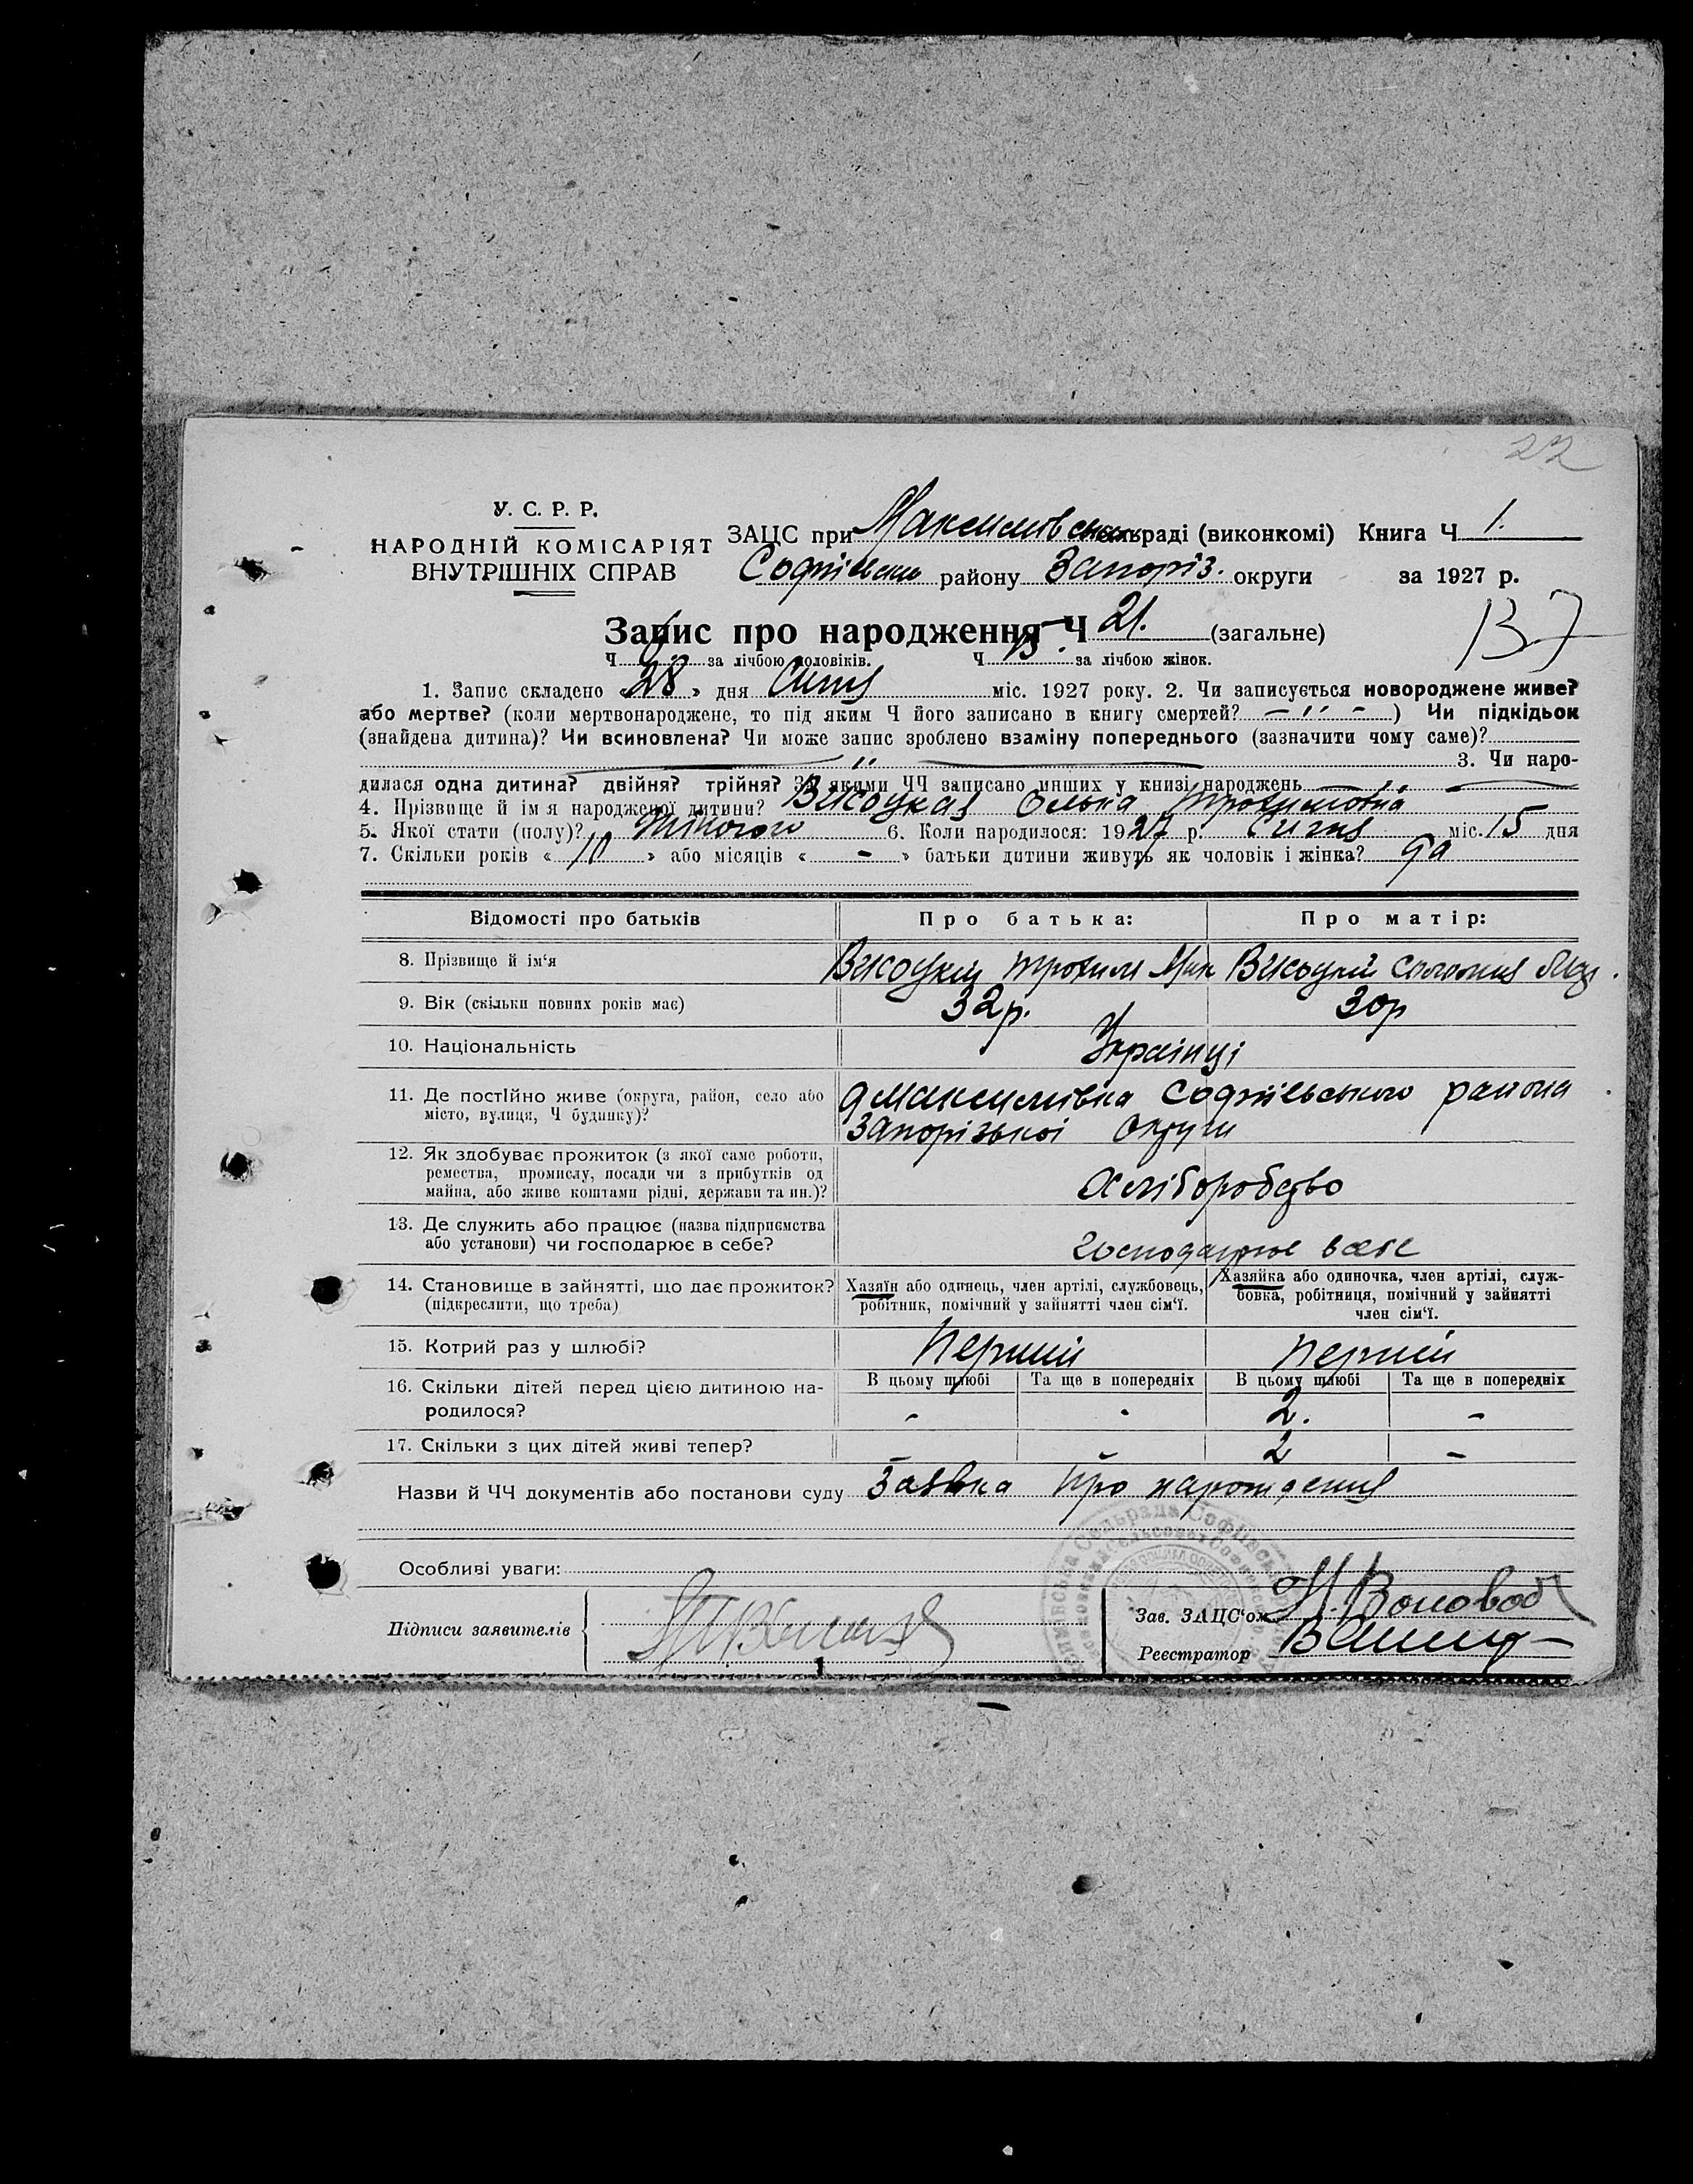 22
У. С. Р. Р.
НАРОДНІЙ КОМІСАРІЯТ
ВНУТРІШНІХ СПРАВ
ЗАЦС при раді (виконкомі) Книга Ч 1.
району Запоріз. округи за 1927 р.
Запис про народження Ч 21. (загальне)
Ч за лічбою чоловіків. Ч за лічбою жінок.
1. Запис складено «28» дня міс. 1927 року. 2. Чи записується новороджене живе?
або мертве? (коли мертвонароджене, то під яким Ч його записано в книгу смертей? – ׳׳ –) Чи підкідьок
(знайдена дитина)? Чи всиновлена? Чи може запис зроблено взаміну попереднього (зазначити чому саме)?
3. Чи наро-
дилася одна дитина? двійня? трійня? За якими ЧЧ записано инших у книзі народжень
4. Прізвище й ім'я народженої дитини? Висоцкая Олька Трохимовна
5. Якої стати (полу)? Жіночого 6. Коли народилося: 1927 р. міс. 15 дня
7. Скільки років «10» або місяців «-» батьки дитини живуть як чоловік і жінка? да
Відомості про батьків Про батька: Про матір:
8. Прізвище й ім'я Висоцкій Трохим Мак Висоцкій Соломия
9. Вік (скільки повних років має) 32р. 30р
10. Національність Українці
11. Де постійно живе (округа, район, село або місто, вулиця, Ч будинку)? Софіївського района
Запорізькоі Округи
12. Як здобуває прожиток (з якої саме роботи,
ремества, промислу, посади чи з прибутків од
майна, або живе коштами рідні, держави та ин.)? Хліборобство
13. Де служить або працює (назва підприємства
або установи) чи господарює в себе? господарює в себе
14. Становище в зайнятті, що дає прожиток?
(підкреслити, що треба)
Хазяїн або одинець, член артілі, службовець,
робітник, помічний у зайнятті член сім'ї.
Хазяйка або одиночка, член артілі, служ-
бовка, робітниця, помічний у зайнятті
член сім'ї.
15. Котрий раз у шлюбі? Перший Перший
16. Скільки дітей перед цією дитиною на-
родилося?
В цьому шлюбі Та ще в попередніх В цьому шлюбі Та ще в попередніх
- - 2. -
17. Скільки з цих дітей живі тепер? - - 2 -
Назви й ЧЧ документів або постанови суду Заявка про нарождения
Особливі уваги:
Підписи заявителів
Зав. ЗАЦС'ом
Реєстратор